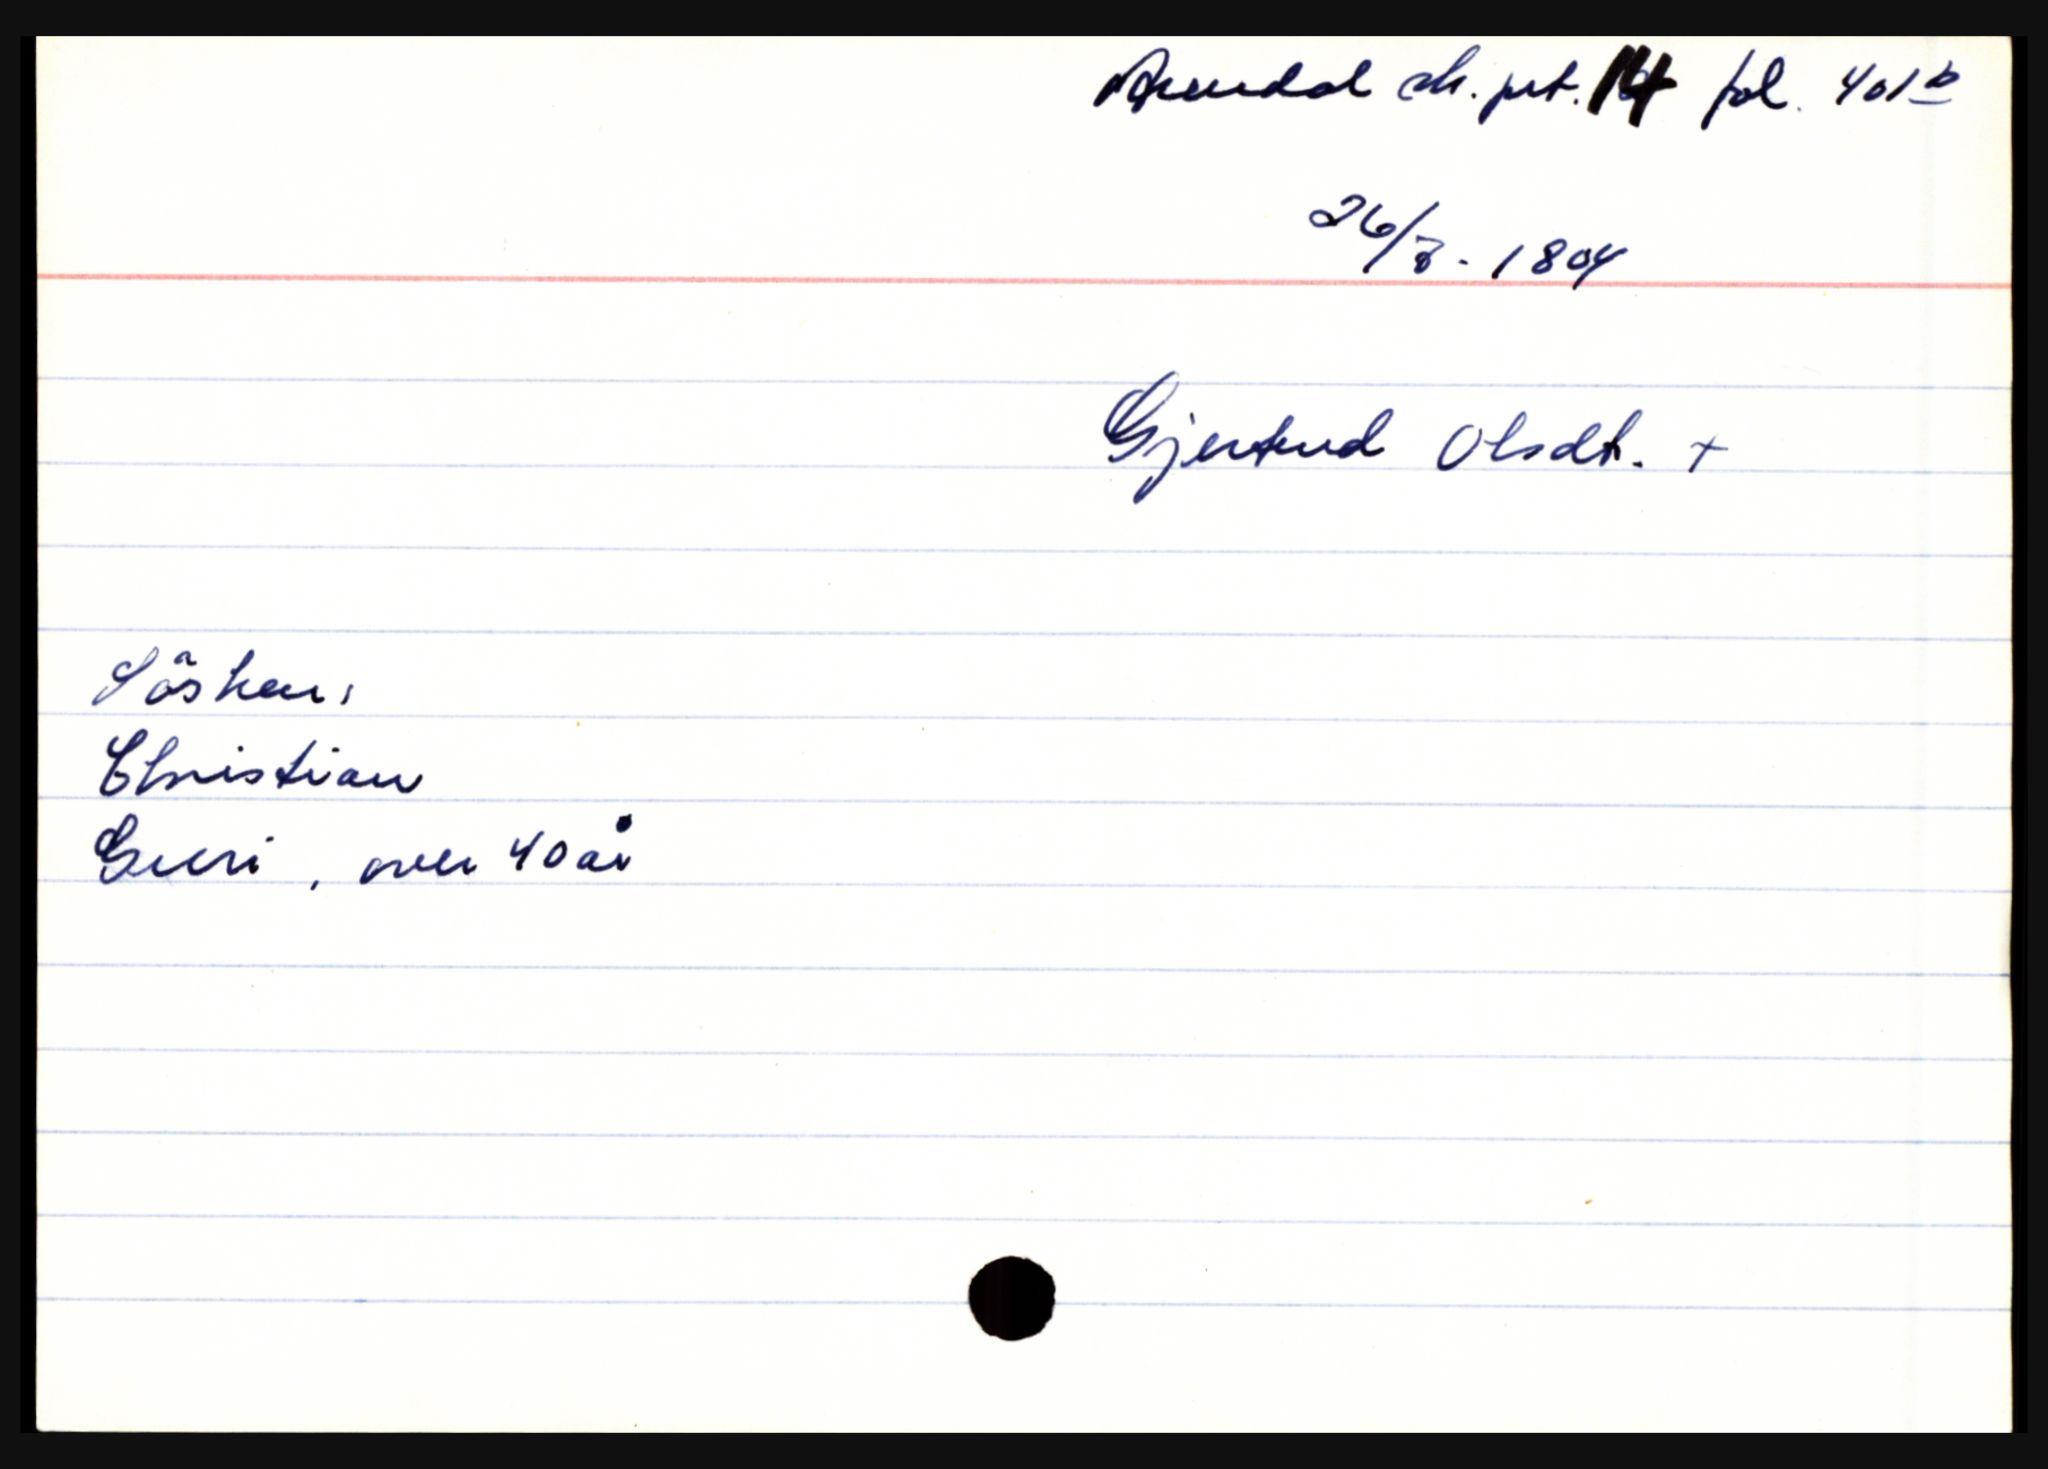 Arendal sk. prt. 14 fol. 401b
26/8 - 1804
Gjertrud Olsdt. +
Søsken:
Christian
Guri, over 40 år